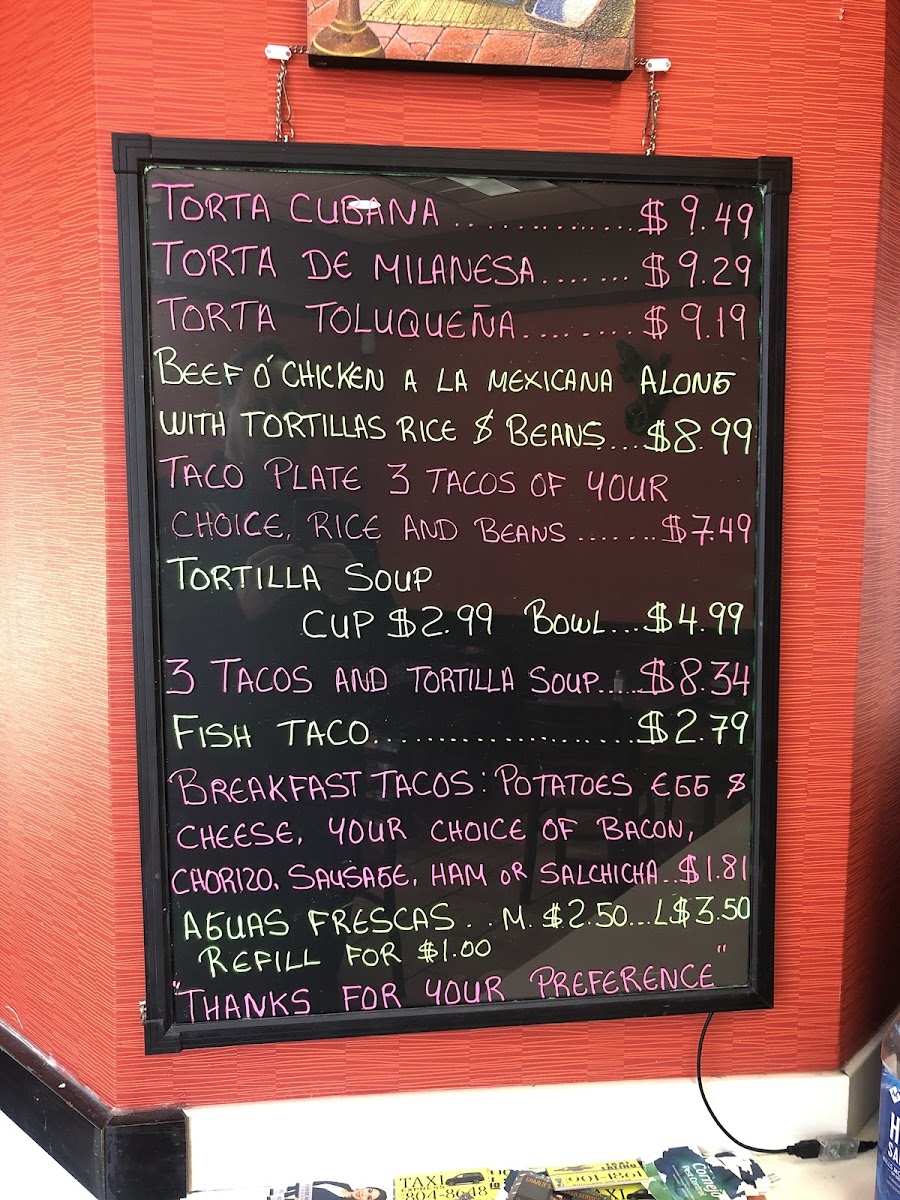 TORTA CUBANA .............. $9.49
TORTA DE MILANESA........ $9.29
TORTA TOLUQUEÑA......... $9.19
BEEF Ó CHICKEN A LA MEXICANA ALONE
WITH TORTILLAS RICE & BEANS...$8.99
TACO PLATE 3 TACOS OF YOUR
CHOICE, RICE AND BEANS .......$7.49
TORTILLA SOUP
CUP $2.99 BOWL...$4.99
3 TACOS AND TORTILLA SOUP.....$8.34
FISH TACO......................$2.79
BREAKFAST TACOS: POTATOES EGG &
CHEESE, YOUR CHOICE OF BACON,
CHORIZO, SAUSAGE, HAM OR SALCHICHA..$1.81
AGUAS FRESCAS... M. $2.50...L$3.50
REFILL FOR $1.00
"THANKS FOR YOUR PREFERENCE"
TAXI
804-8648
TAXI
901-8301